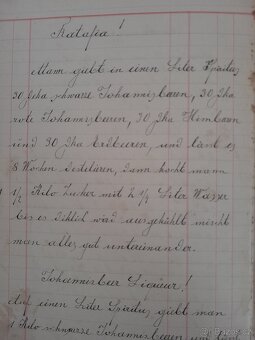 Ratafia!
Mann giebt in einen Liter Spiritus
30 Deka schwarze Johannisbaren, 30 Dka
rote Johannisbeeren, 30 Dka Himbaren
und 30 Dka Erdbeeren, und läst es
8 Wochen destilären, dann kocht mann
1/2 Kilo Zucker mit 2 1/4 Liter Wasser
bis es dicklich wird ausgekühlt mischt
man alles gut untereinander.
Johannisbar Liqueur!
Auf einen Liter Spiritus giebt man
1 Kilo schwarze Johannisbeeren und läst